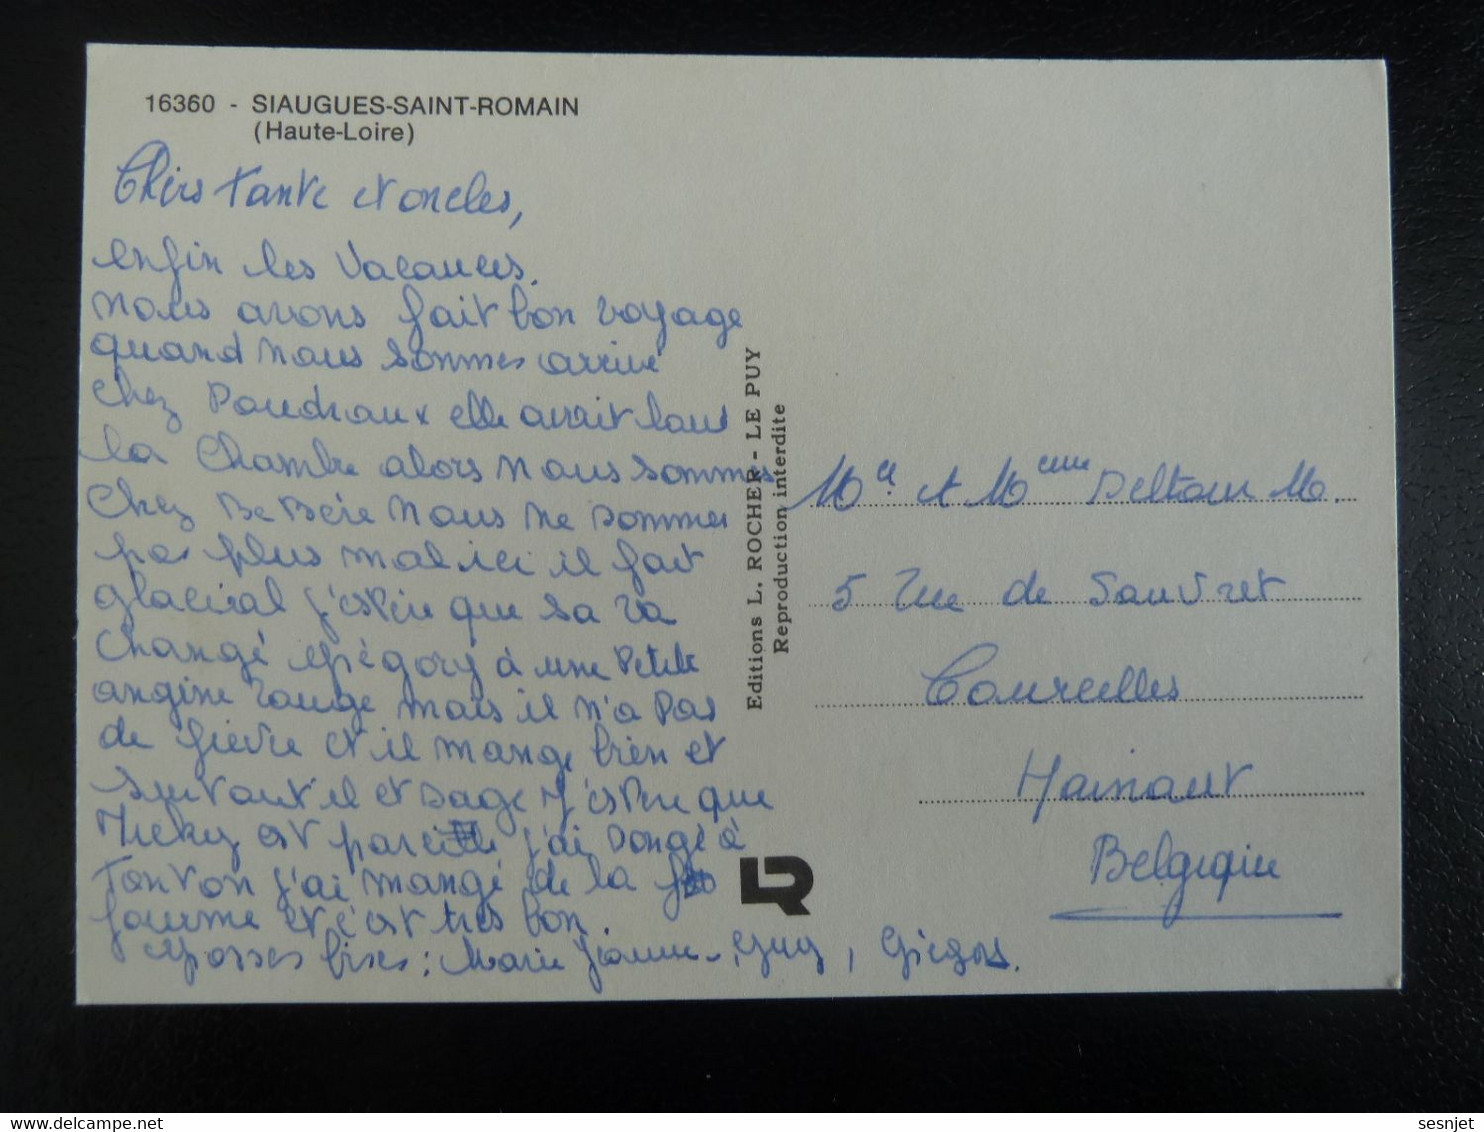 16360 - SIAUGUES-SAINT-ROMAIN
(Haute-Loire)
Chers Tante et oncles,
enfin les Vacances.
nous avons fait bon voyage
quand nous sommes arrivé
chez elle avait loué
la chambre alors nous sommes
chez Bebère nous ne sommes
pas plus mal ici il fait
glacial j'espère que sa va
changé grégory à une petite
angine rouge mais il n'a pas
de fièvre et il mange bien et
surtout il et sage j'espère que
Micky est j'ai songé à
Tonton j'ai mangé de la
fourme et c'est très bon.
grosses bises : Marie Jeanne - Guy, Grégory.
Editions L. ROCHER - LE PUY
Reproduction interdite
LR
Mr et Mme Deltour M.
5 rue de Sauvret
Courcelles
Hainaut
Belgique
sesnjet